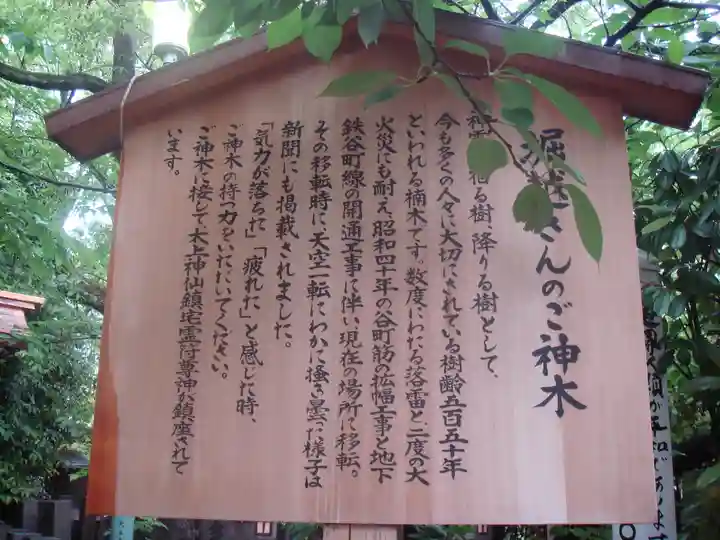 堀さんのご神木
宿る樹、降りる樹として、
今も多くの人々に大切にされている樹齢五百五十年
といわれる楠木です。数度にわたる落雷と二度の大
火災にも耐え、昭和四十年の谷町筋の拡幅工事と地下
鉄谷町線の開通工事に伴い現在の場所に移転。
その移転時に、天空一転にわかに掻き曇った様子は
新聞にも掲載されました。
「気力が落ちた」「疲れた」と感じた時、
ご神木の持つ力をいただいてください。
ご神木に接して、木上神仙鎮宅霊符尊神が鎮座されて
います。
が平和であります